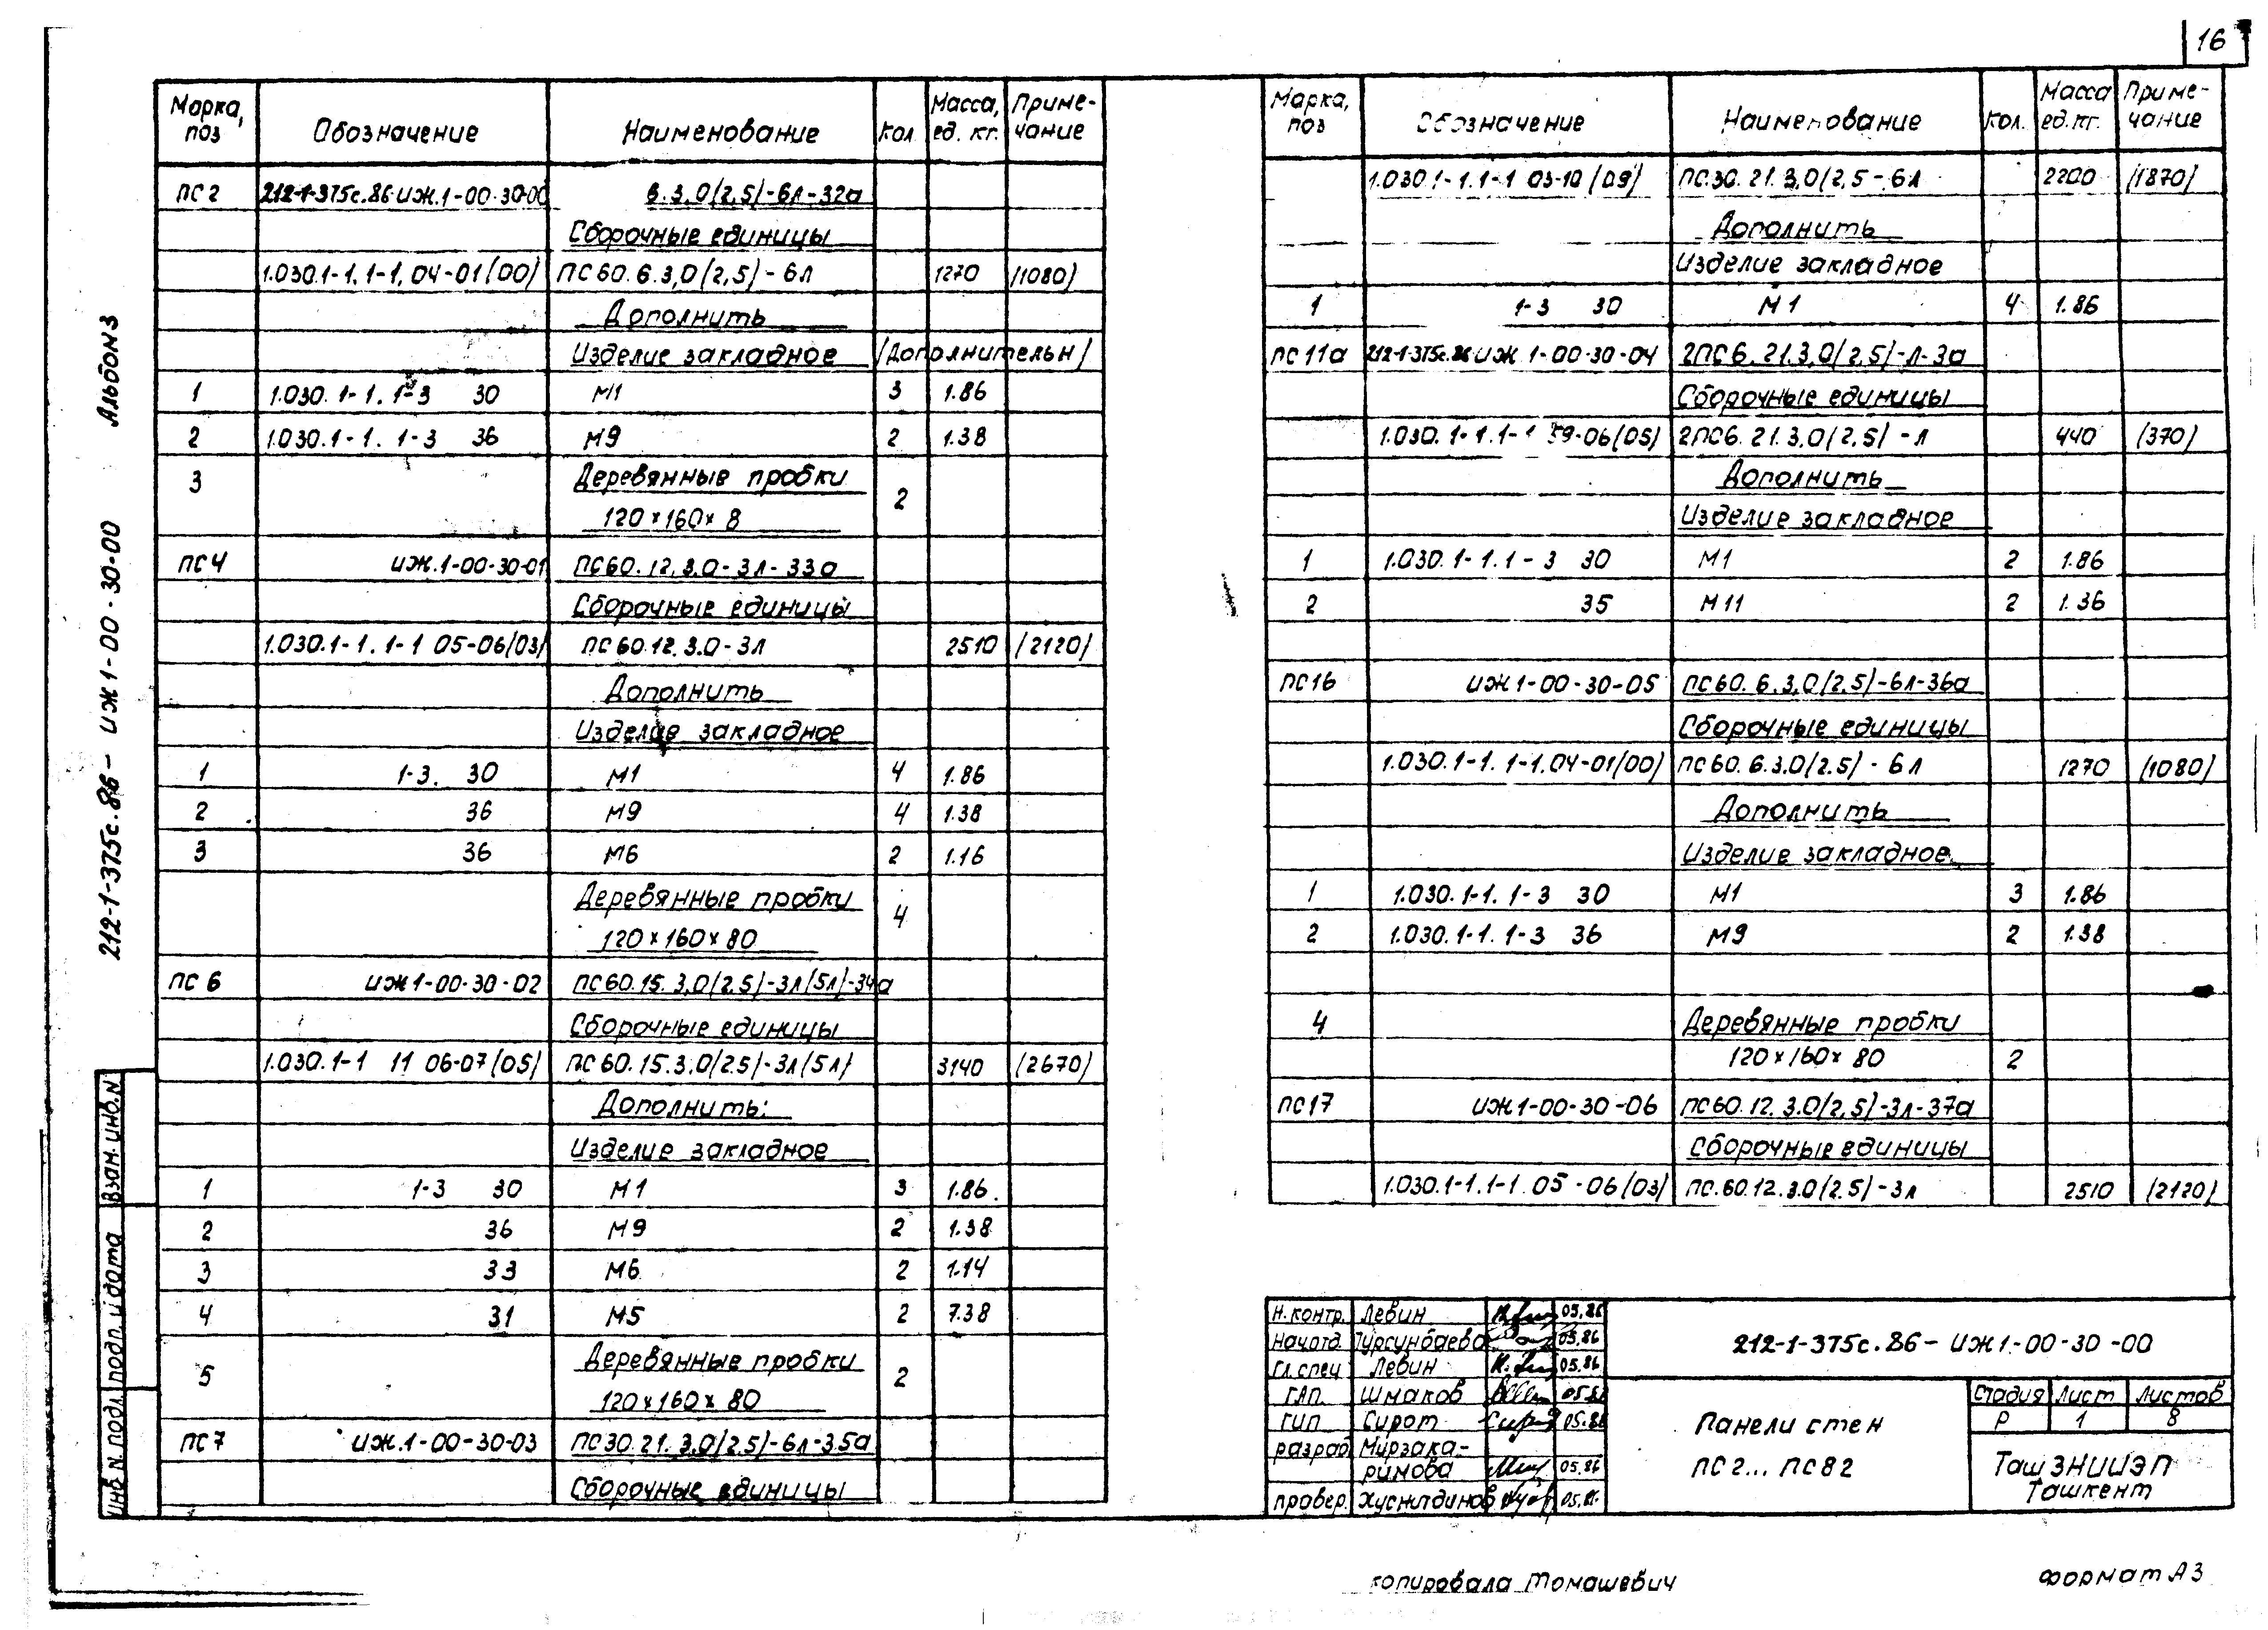 16
Альбом 3
212-1-375с.86 - ИЖ1-00-30-00
Взам. инв. N
Подп. и дата
Инв. N подл.
Марка, поз Обозначение Наименование Кол Масса, ед. кг. Приме-чание
ПС2 212-1-375с.86-ИЖ.1-00-30-00 6.3,0(2,5)-6л-32а
Сборочные единицы
1.030.1-1.1-1.04-01(00) ПС60.6.3,0(2,5)-6л 1270 (1080)
Дополнить
Изделие закладное (Дополнительн)
1 1.030.1-1.1-3 30 М1 3 1.86
2 1.030.1-1.1-3 36 М9 2 1.38
3 Деревянные пробки 2
120×160×8
ПС4 ИЖ.1-00-30-01 ПС60.12.3.0-3л-33а
Сборочные единицы
1.030.1-1.1-1 05-06(03) ПС60.12.3.0-3л 2510 (2120)
Дополнить
Изделие закладное
1 1-3. 30 М1 4 1.86
2 36 М9 4 1.38
3 36 М6 2 1.16
Деревянные пробки 4
120×160×80
ПС6 ИЖ1-00-30-02 ПС60.15.3,0(2.5)-3л(5л)-34а
Сборочные единицы
1.030.1-1 11 06-07(05) ПС60.15.3.0(2.5)-3л(5л) 3140 (2670)
Дополнить:
Изделие закладное
1 1-3 30 М1 3 1.86.
2 36 М9 2 1.38
3 33 М6 2 1.14
4 31 М5 2 7.38
5 Деревянные пробки 2
120×160×80
ПС7 ИЖ.1-00-30-03 ПС30.21.3.0(2.5)-6л-35а
Сборочные единицы
Марка, поз Обозначение Наименование Кол. Масса ед.кг. Приме-чание
1.030.1-1.1-1 03-10(09) ПС.30.21.3,0(2,5-6л 2200 (1870)
Дополнить
Изделие закладное
1 1-3 30 М1 4 1.86
ПС11а 212-1-375с.86 ИЖ.1-00-30-04 2ПС6.21.3,0(2,5)-л-3а
Сборочные единицы
1.030.1-1.1-1 39-06(05) 2ПС6.21.3.0(2.5)-л 440 (370)
Дополнить
Изделие закладное
1 1.030.1-1.1-3 30 М1 2 1.86
2 35 М11 2 1.36
ПС16 ИЖ1-00-30-05 ПС60.6.3,0(2.5)-6л-36а
Сборочные единицы
1.030.1-1.1-1.04-01(00) ПС60.6.3.0(2.5)-6л 1270 (1080)
Дополнить
Изделие закладное.
1 1.030.1-1.1-3 30 М1 3 1.86
2 1.030.1-1.1-3 36 М9 2 1.38
4 Деревянные пробки
120×160×80 2
ПС17 ИЖ1-00-30-06 ПС60.12.3.0(2,5)-3л-37а
Сборочные единицы
1.030.1-1.1-1.05-06(03) ПС.60.12.3.0(2.5)-3л 2510 (2120)
Н.контр. Левин 05.86
Нач.отд. Турсунбаева 05.86
Гл.спец Левин 05.86
ГАП. Шмаков 05.86
ГИП Сирот 05.86
разраб Мирзака-римова 05.86
провер. Хуснитдинов 05.86.
212-1-375с.86 - ИЖ1-00-30-00
Панели стен
ПС2... ПС82
Стадия Лист Листов
Р 1 8
ТашЗНИИЭП
Ташкент
копировала Томашевич
Формат А3